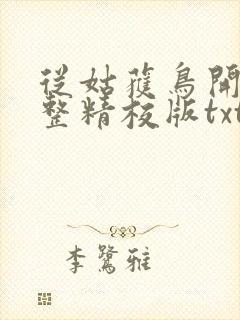 從姑蒦鳥開
整精校版txt
李鷺雅